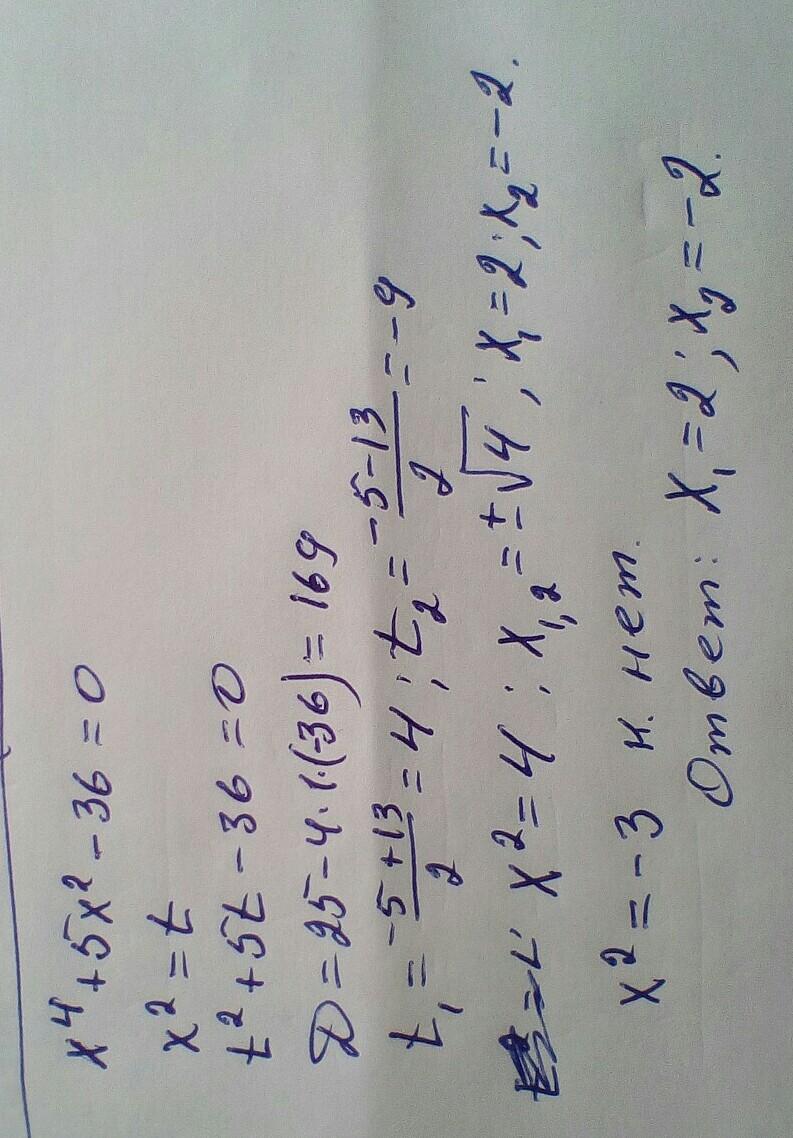 x⁴+5x²-36=0
x²=t
t²+5t-36=0
D=25-4·1·(-36)=169
t₁=(-5+13)/2=4; t₂=(-5-13)/2=-9
x²=4; x₁,₂=±√4; x₁=2; x₂=-2.
x²=-3 к. нет.
Ответ: x₁=2; x₂=-2.